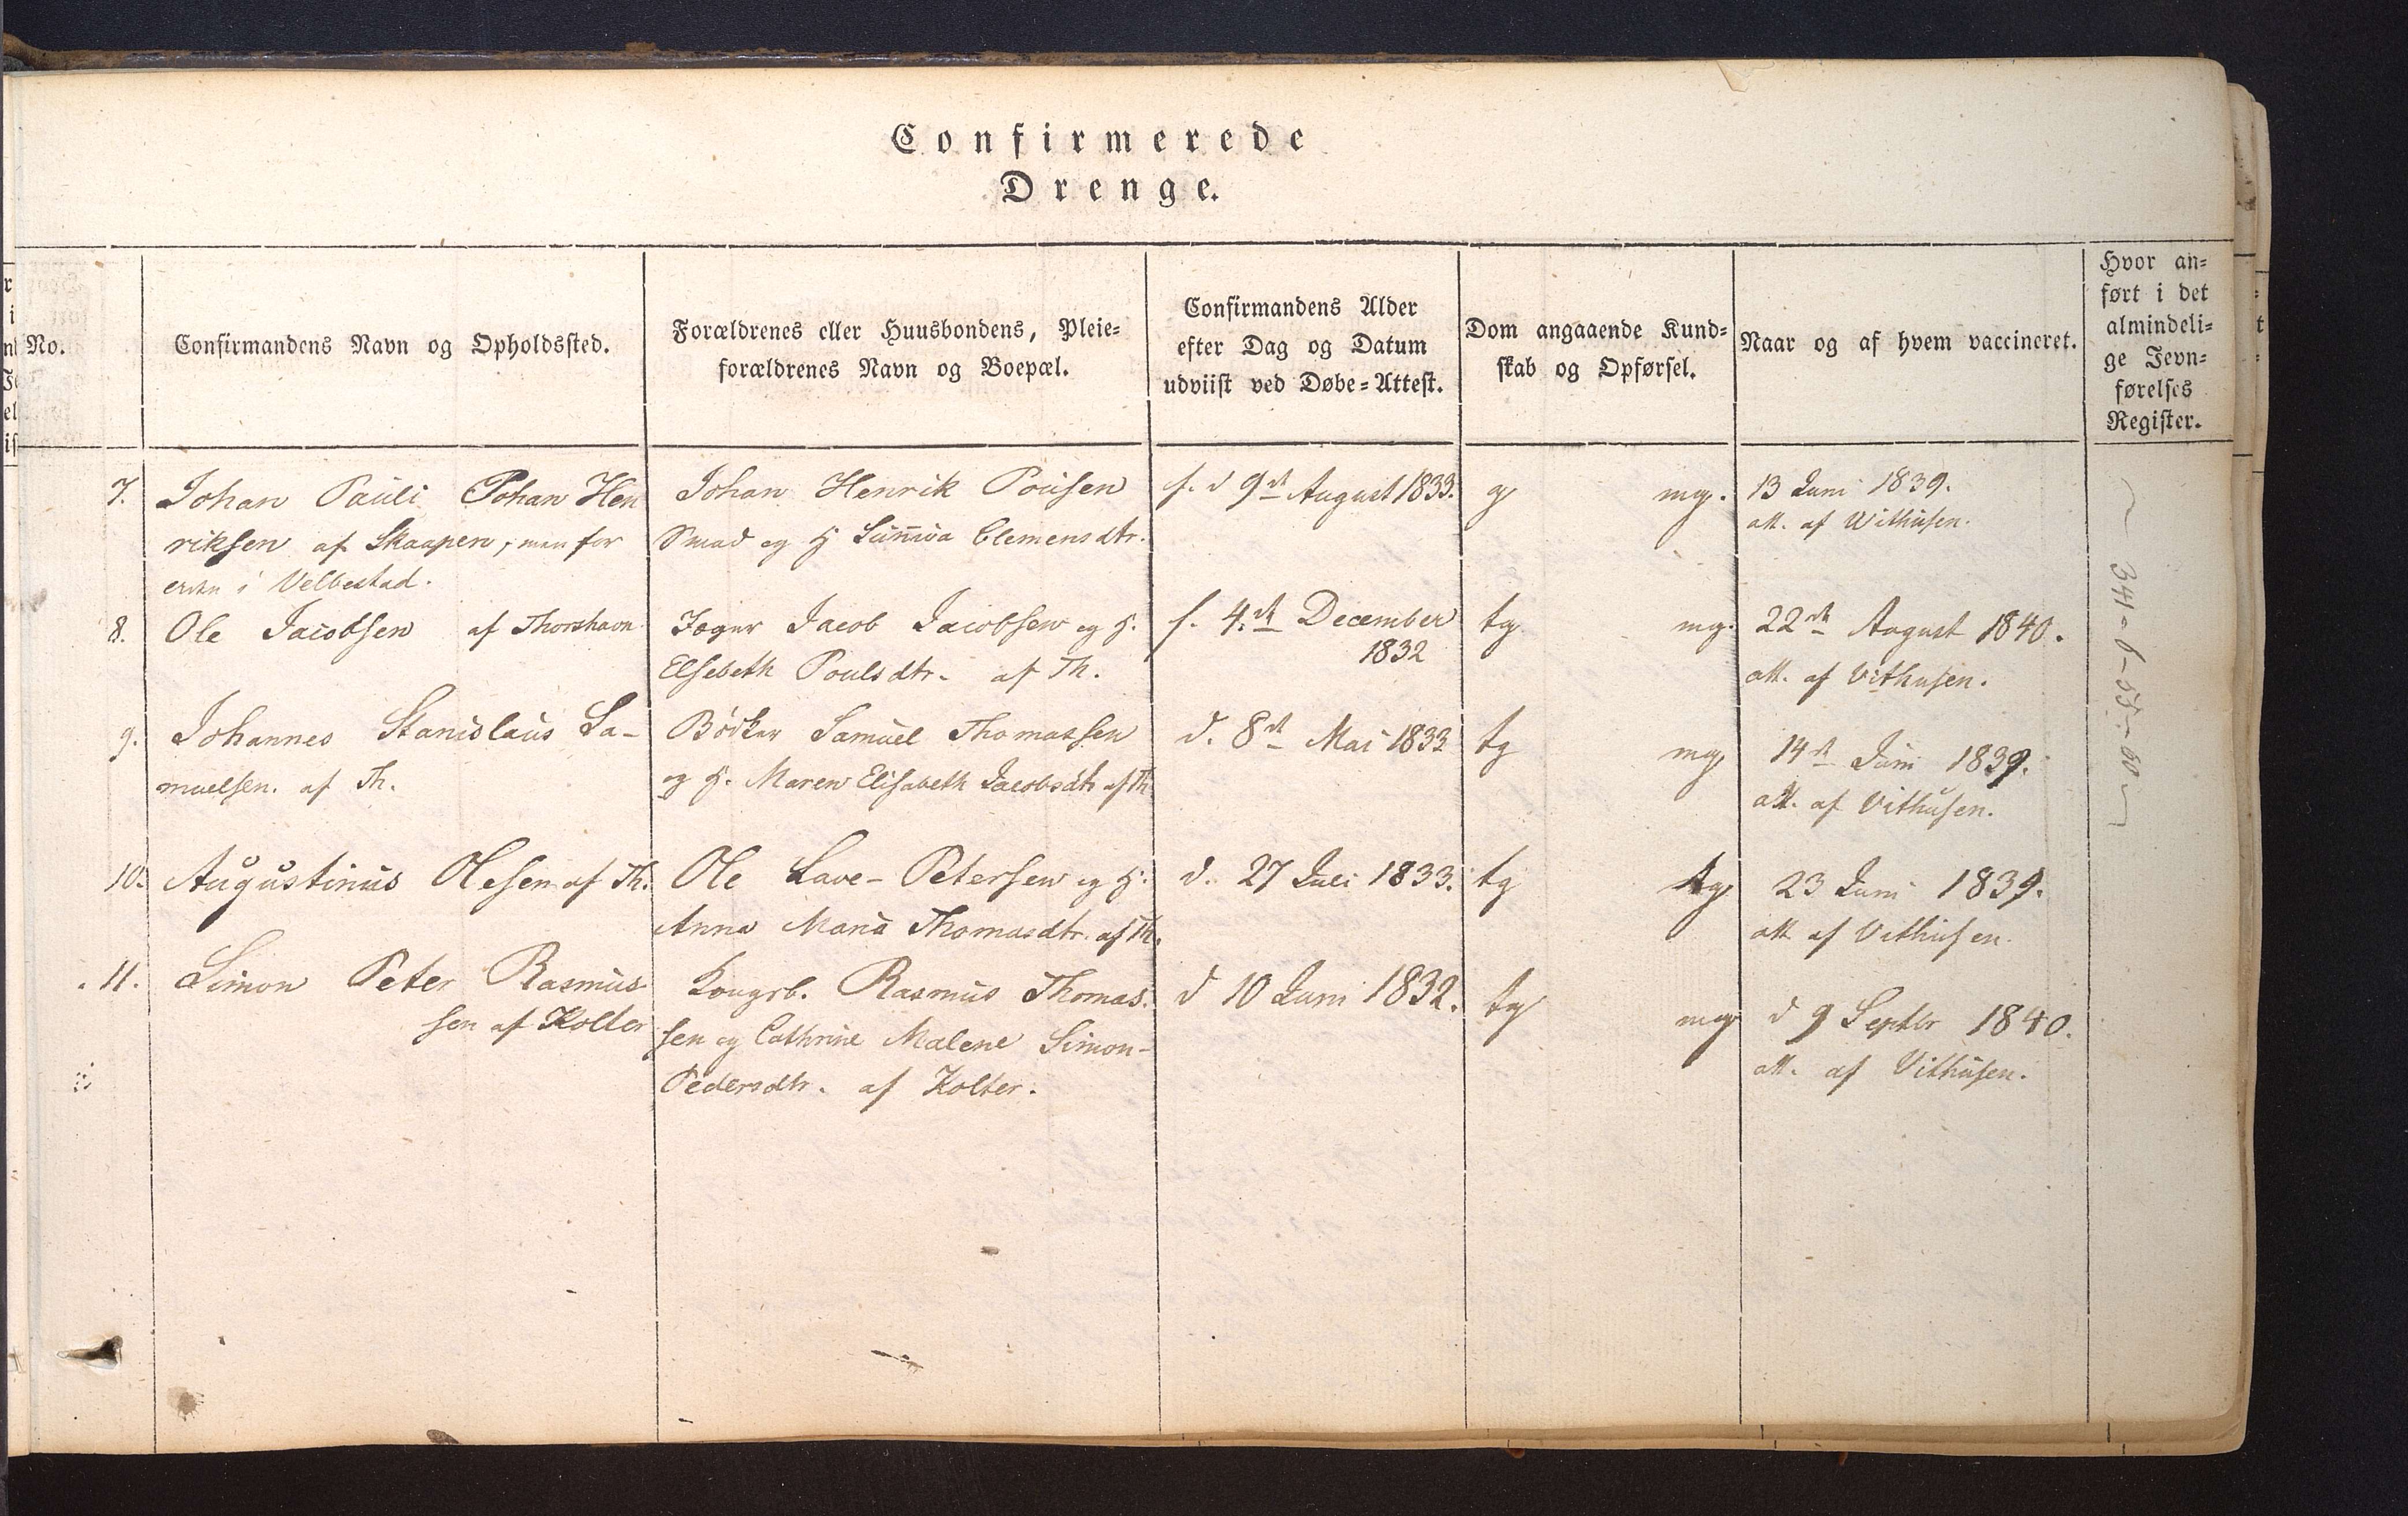 Confirmerede
Drenge.
No.
Confirmandens Navn og Opholdssted.
Forældrenes eller Huusbondens, Pleie=
forældrenes Navn og Boepæl.
Confirmandens Alder
efter Dag og Datum
udviist ved Døbe=Attest.
Dom angaaende Kund=
skab og Opførsel.
Naar og af hvem vaccineret.
Hvor an=
ført i det
almindeli=
ge Jevn=
førelses
Register.
7.
Johan Pauli Johan Hen
riksen af Skaapen, men for
i Velbestad.
Johan Henrik Poulsen
Smed og H Sunniva Clemensdtr.
f. d 9de August 1833.
g mg.
13 Juni 1839.
att. af Withusen.
8.
Ole Jacobsen af Thorshavn
Jæger Jacob Jacobsen og H.
Elsebeth Poulsdtr. af Th.
f. 4.de December
1832
tg mg.
22de August 1840.
att. af Vithusen.
9.
Johannes Stanislaus Sa-
muelsen. af Th.
Bödker Samuel Thomassen
og H. Maren Elisabeth Jacobsdtr af Th
d. 8de Mai 1833
tg mg
14de Juni 1839.
att. af Vithusen.
10.
Augustinus Olesen af Th.
Ole Lave-Petersen og H.
Anna Maria Thomasdtr. af Th.
d. 27 Juli 1833.
tg tg
23 Juni 1839.
att af Vithusen.
11.
Simon Peter Rasmus
sen af Kolter
Kongsb. Rasmus Thomas.
sen og Cathrine Malene Simon-
Pedersdtr. af Kolter.
d 10 Juni 1832.
tg mg
d 9 Septbr 1840.
att. af Vithusen.